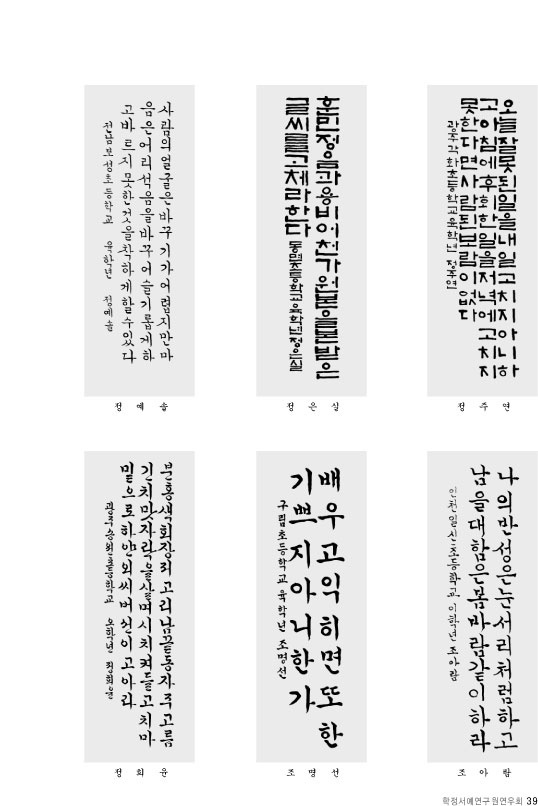 사람의얼굴은바꾸기가어렵지만마
음은어리석음을바꾸어슬기롭게하
고바르지못한것을착하게할수있다
전남보성초등학교 육학년 정예솔
정 예 솔
훈민정음과용비어천가원본을본받은
글씨를고체라한다
동명초등학교육학년정은실
정 은 실
오늘잘못된일을내일고치지아니하
고아침에후회한일을저녁에고치지
못한다면사람된보람이없다
광주각화초등학교육학년 정주연
정 주 연
분홍색회장저고리남끝동자주고름
긴치맛자락을살며시치켜들고치마
밑으로하얀외씨버선이고아라
광주송원초등학교 오학년 정희윤
정 희 윤
배우고익히면또한
기쁘지아니한가
구림초등학교 육학년 조명선
조 명 선
나의반성은눈서리처럼하고
남을대함은봄바람같이하라
인천일신초등학교 이학년조아람
조 아 람
학정서예연구원연우회 39